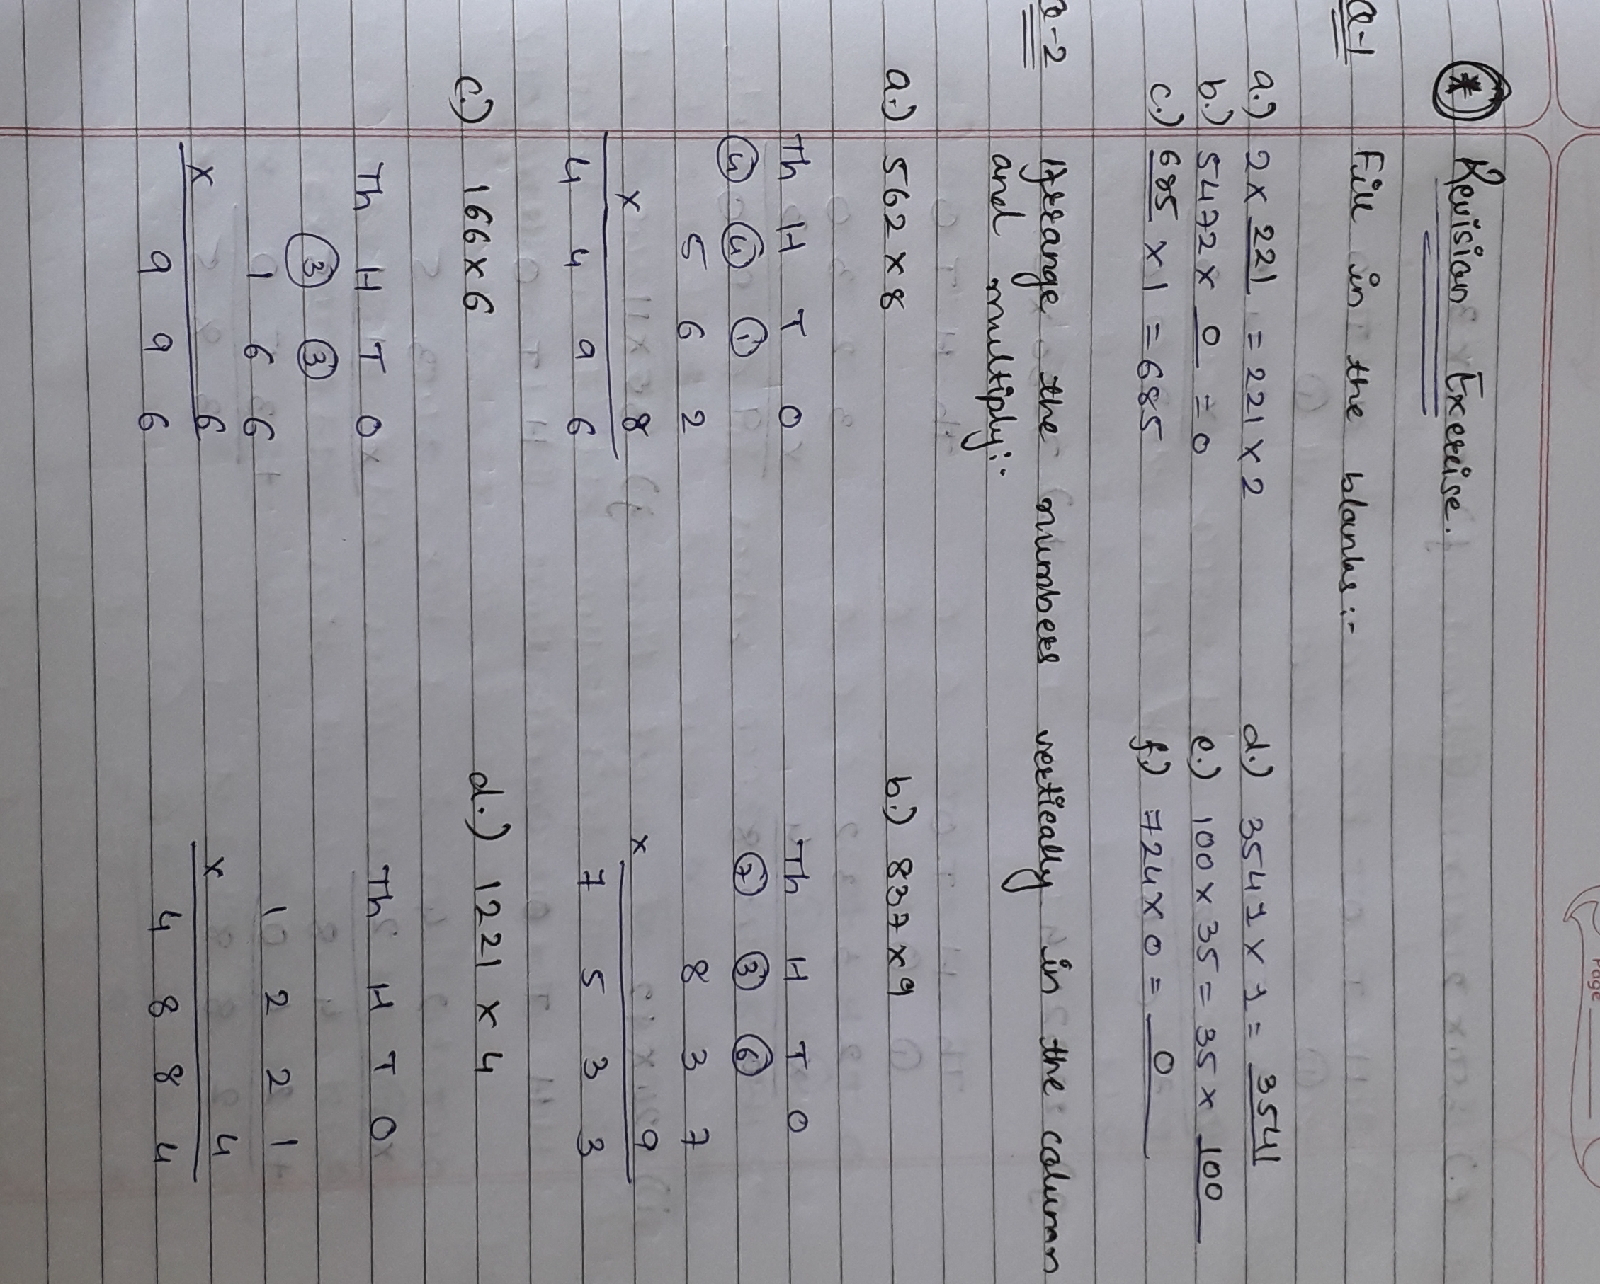 Page
* Revision Exercise.
Q-1 Fill in the blanks:-
a.) 2 x 221 = 221 x 2 d.) 3541 x 1 = 3541
b.) 5472 x 0 = 0 e.) 100 x 35 = 35 x 100
c.) 685 x 1 = 685 f.) 724 x 0 = 0
Q-2 Arrange the numbers vertically in the column
and multiply:-
a.) 562 x 8 b.) 837 x 9
Th H T O Th H T O
4 4 1 7 3 6
5 6 2 8 3 7
x 8 x 9
4 4 9 6 7 5 3 3
c.) 166 x 6 d.) 1221 x 4
Th H T O Th H T O
3 3
1 6 6 1 2 2 1
x 6 x 4
9 9 6 4 8 8 4